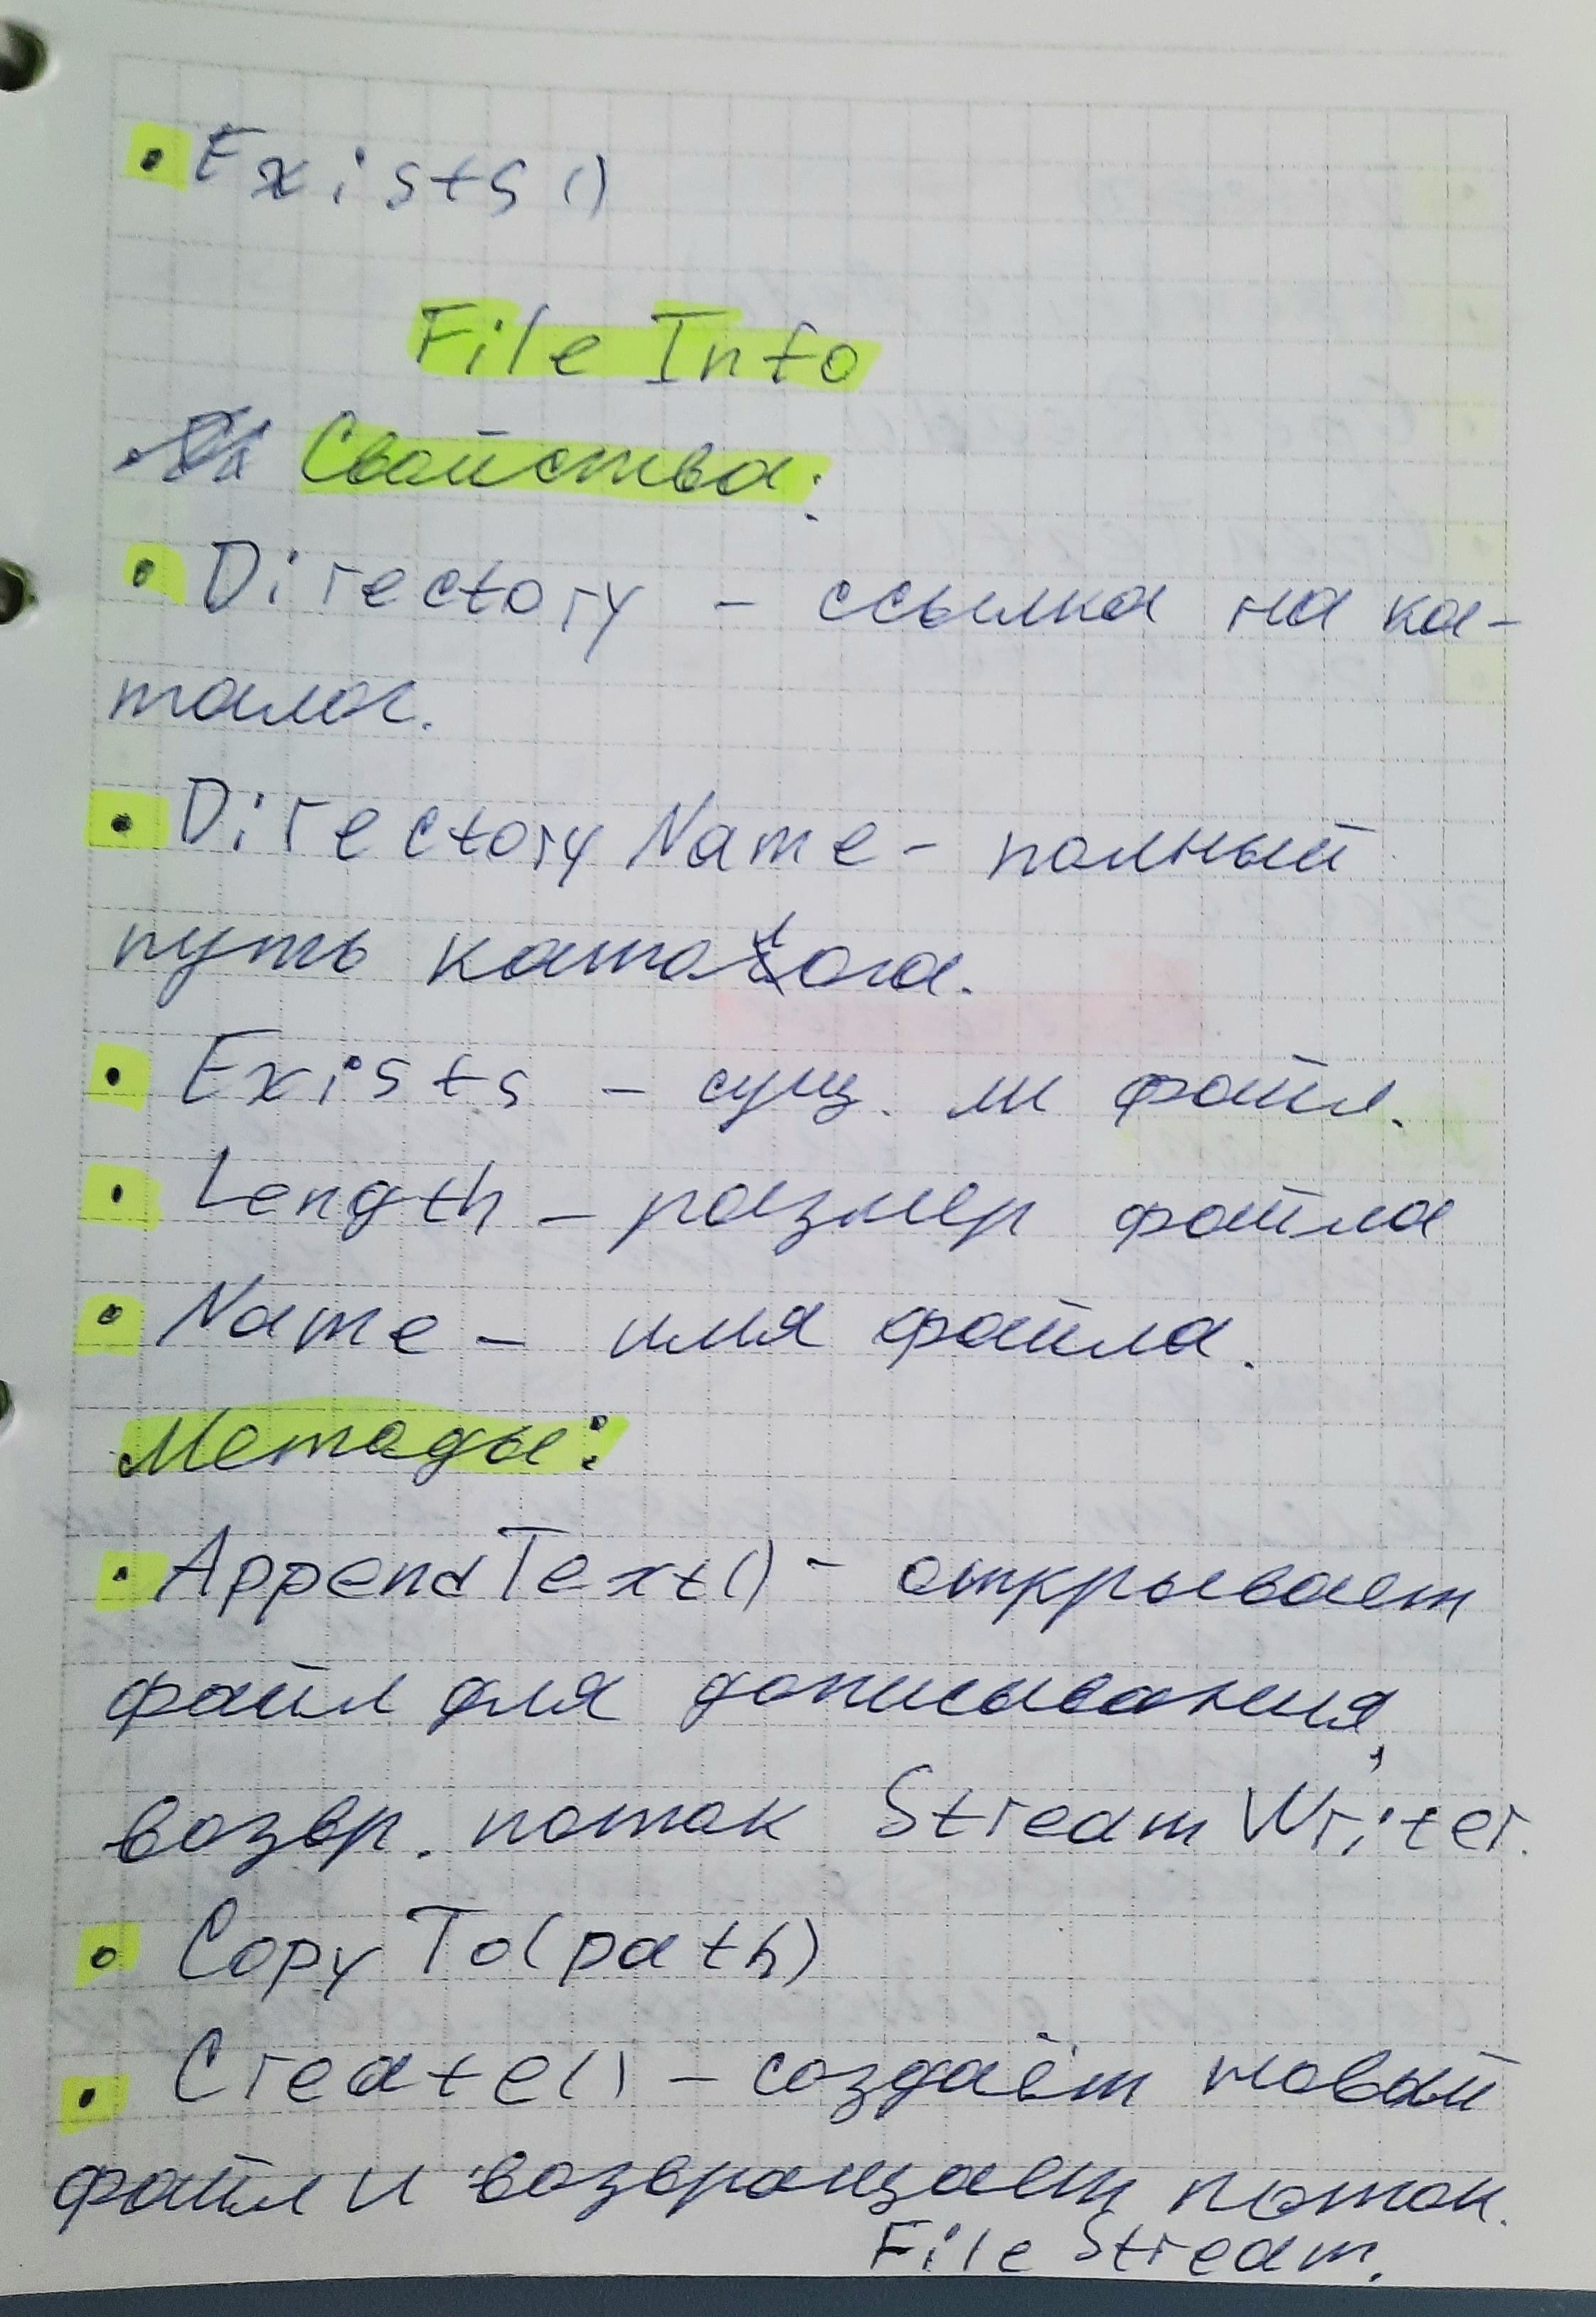 • Exists()
File Info
Свойства:
• Directory – ссылка на ка-
талог.
• Directory Name – полный
путь каталога.
• Exists – сущ. ли файл.
• Length – размер файла
• Name – имя файла.
Методы:
• AppendText() – открывает
файл для дописывания,
возвр. поток StreamWriter.
• CopyTo(path)
• Create() – создаёт новый
файл и возвращает поток.
File Stream.